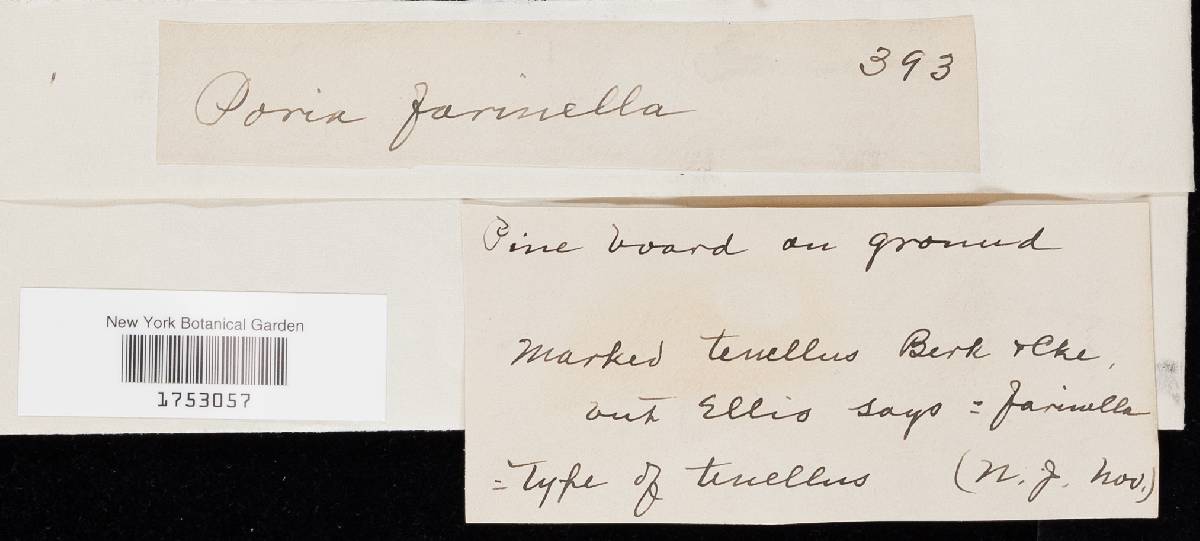 393
Poria farinella
Pine board on ground
New York Botanical Garden
1753057
Marked tenellus Berk & Cke,
but Ellis says = farinella
= Type of tenellus (N. J. Nov.)